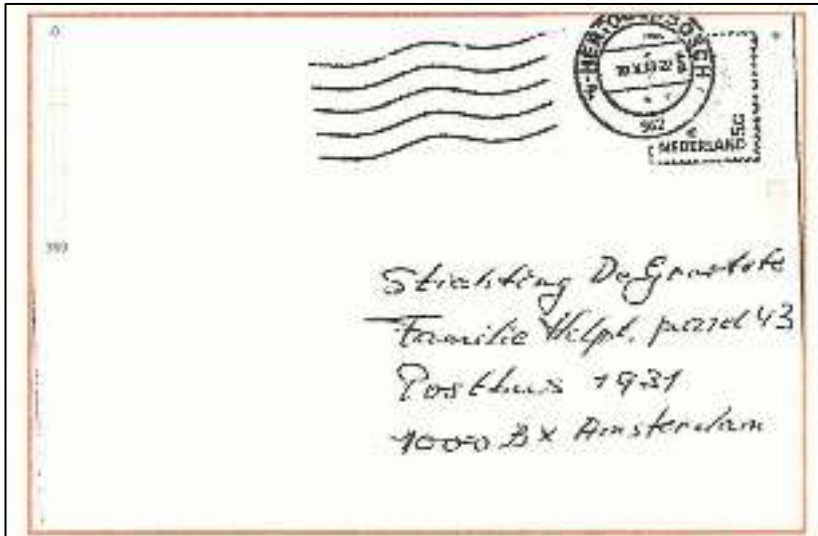 's-HERTOGENBOSCH
962
NEDERLAND
Stichting De Grootste
Familie Hulpl. pand 43
Postbus 1931
1000 BX Amsterdam